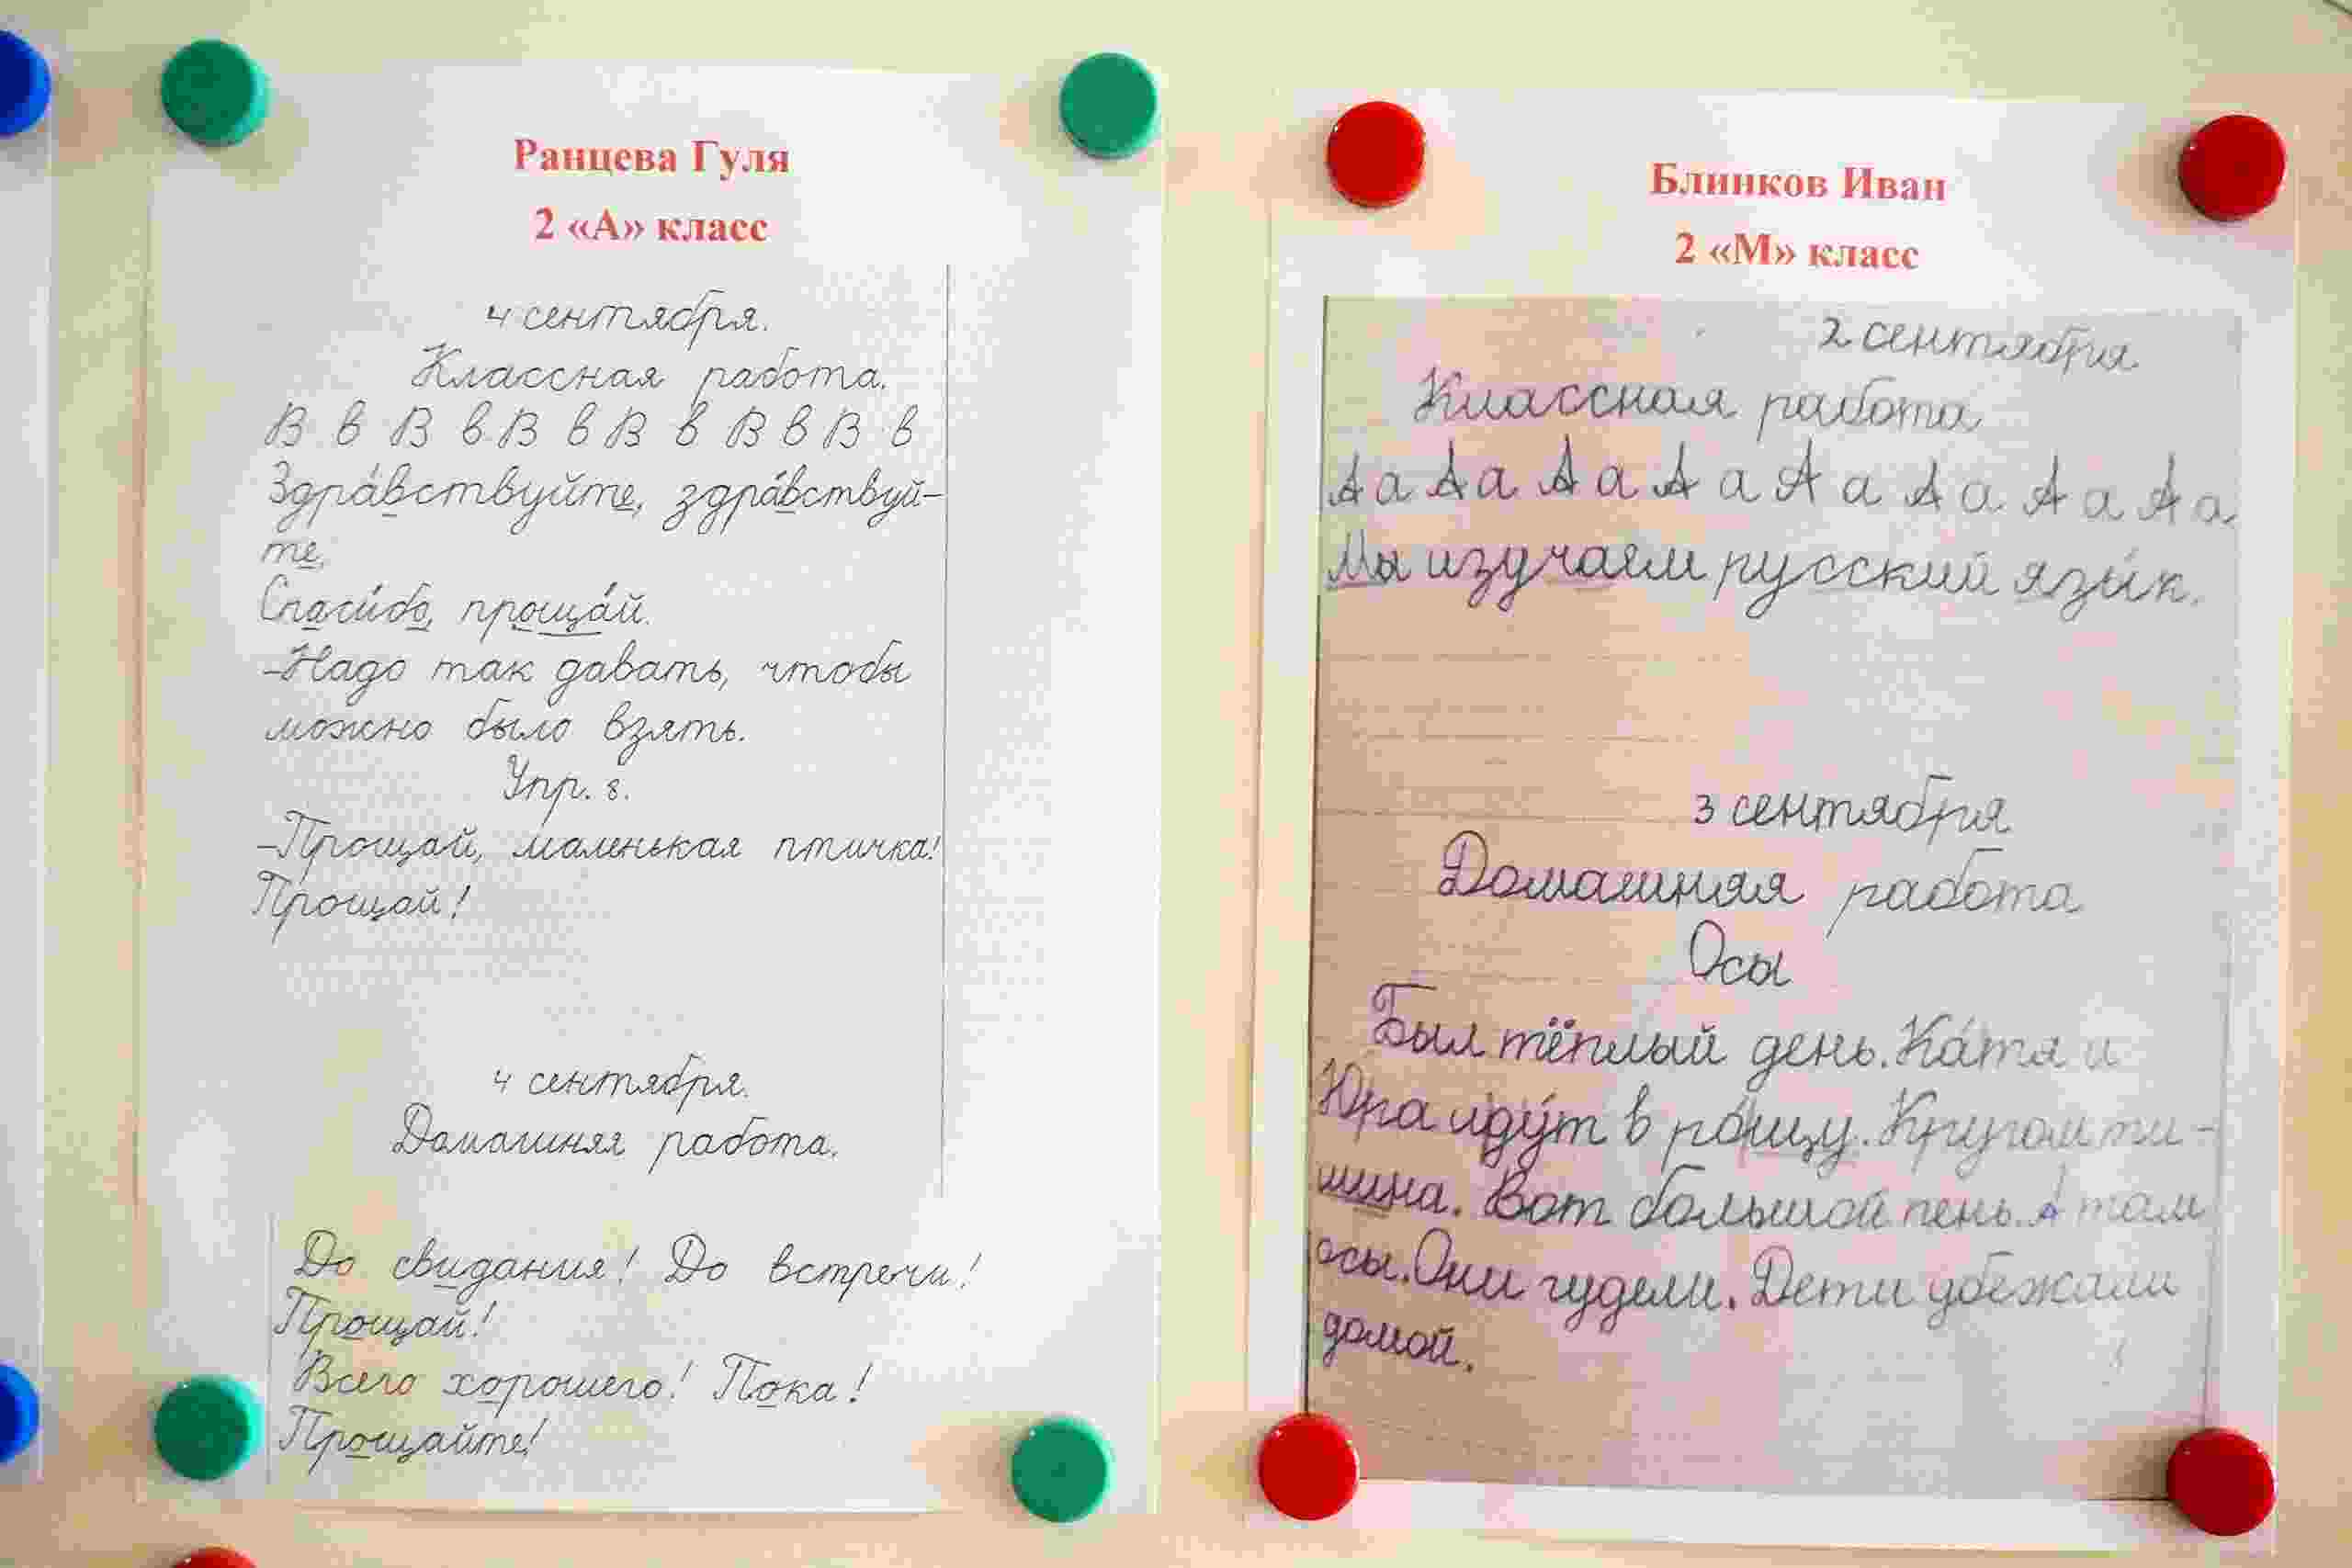 Ранцева Гуля
2 «А» класс
4 сентября.
Классная работа.
В в В в В в В в В в В в
Здра́вствуйте, здра́вствуй-
те,
Спаси́бо, проща́й.
-Надо так давать, чтобы
можно было взять.
Упр. 8.
-Прощай, маленькая птичка!
Прощай!
4 сентября.
Домашняя работа.
До свидания! До встречи!
Прощай!
Всего хорошего! Пока!
Прощайте!
Блинков Иван
2 «М» класс
2 сентября
Классная работа
А а А а А а А а А а А а А а А а
Мы изучаем русский язы́к.
3 сентября
Домашняя работа
Осы
Был тёплый день. Ка́тя и
Юра иду́т в ро́щу. Кругом ти-
шина. Вот большой пень. А там
осы. Они гудели. Дети убежали
домой.